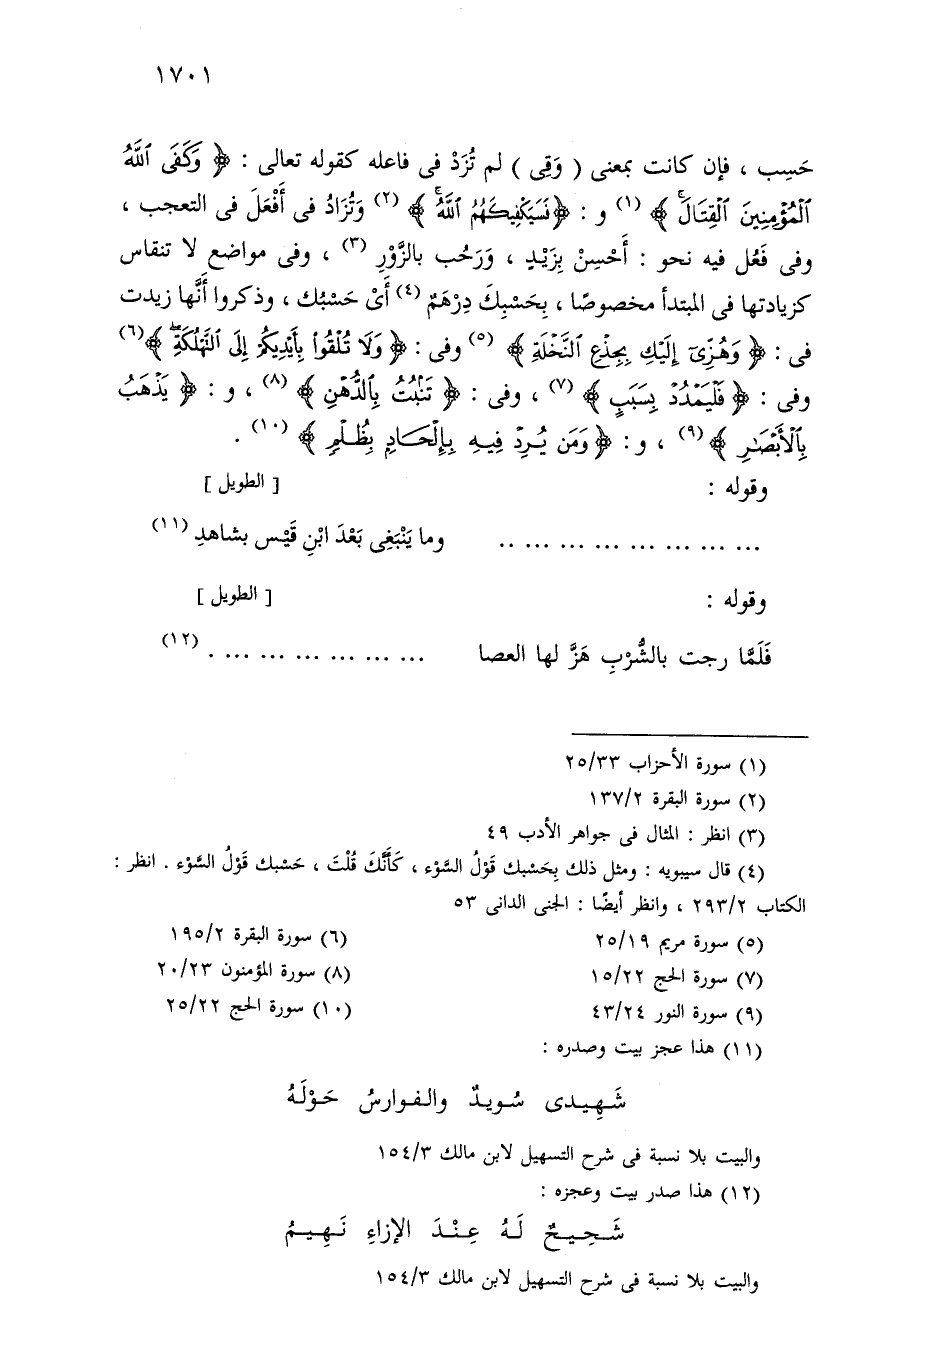 ١٧٠١
حَسِب ، فإن كانت بمعنى ( وَقِى ) لم تُزَدْ فى فاعله كقوله تعالى : ﴿ وَكَفَى ٱللَّهُ
ٱلْمُؤْمِنِينَ ٱلْقِتَالَ ﴾ (١) و : ﴿ فَسَيَكْفِيكَهُمُ ٱللَّهُ ﴾ (٢) وَتُزَادُ فى أَفْعَلَ فى التعجب ،
وفى فَعُل فيه نحو : أَحْسِنْ بِزَيْدٍ ، وَرَحُب بالزَّوْرِ (٣) ، وفى مواضع لا تنقاس
كزيادتها فى المبتدأ مخصوصًا ، بِحَسْبِكَ دِرْهَمٌ (٤) أَىْ حَسْبُك ، وذكروا أَنَّها زيدت
فى : ﴿ وَهُزِّىٓ إِلَيْكِ بِجِذْعِ ٱلنَّخْلَةِ ﴾ (٥) وفى : ﴿ وَلَا تُلْقُوا۟ بِأَيْدِيكُمْ إِلَى ٱلتَّهْلُكَةِ ﴾ (٦)
وفى : ﴿ فَلْيَمْدُدْ بِسَبَبٍ ﴾ (٧) ، وفى : ﴿ تَنۢبُتُ بِٱلدُّهْنِ ﴾ (٨) ، و : ﴿ يَذْهَبُ
بِٱلْأَبْصَٰرِ ﴾ (٩) ، و : ﴿ وَمَن يُرِدْ فِيهِ بِإِلْحَادٍۭ بِظُلْمٍ ﴾ (١٠) .
وقوله : [ الطويل ]
... ... ... ... ... ... ... .. وما يَنْبَغِى بَعْدَ ابْنِ قَيْس بشاهدِ (١١)
وقوله : [ الطويل ]
فَلَمَّا رجت بالشُّرْبِ هَزَّ لها العصا ... ... ... ... ... ... . (١٢)
(١) سورة الأحزاب ٢٥/٣٣
(٢) سورة البقرة ١٣٧/٢
(٣) انظر : المثال فى جواهر الأدب ٤٩
(٤) قال سيبويه : ومثل ذلك بِحَسْبك قَوْلُ السَّوْء ، كَأَنَّكَ قُلْتَ ، حَسْبك قَوْلُ السَّوْء . انظر :
الكتاب ٢٩٣/٢ ، وانظر أيضًا : الجنى الدانى ٥٣
(٥) سورة مريم ٢٥/١٩ (٦) سورة البقرة ١٩٥/٢
(٧) سورة الحج ١٥/٢٢ (٨) سورة المؤمنون ٢٠/٢٣
(٩) سورة النور ٤٣/٢٤ (١٠) سورة الحج ٢٥/٢٢
(١١) هذا عجز بيت وصدره :
شَهِيدى سُويدٌ والفوارسُ حَوْلَهُ
والبيت بلا نسبة فى شرح التسهيل لابن مالك ١٥٤/٣
(١٢) هذا صدر بيت وعجزه :
شَحِيحٌ لَهُ عِنْدَ الإزاءِ نَهِيمُ
والبيت بلا نسبة فى شرح التسهيل لابن مالك ١٥٤/٣